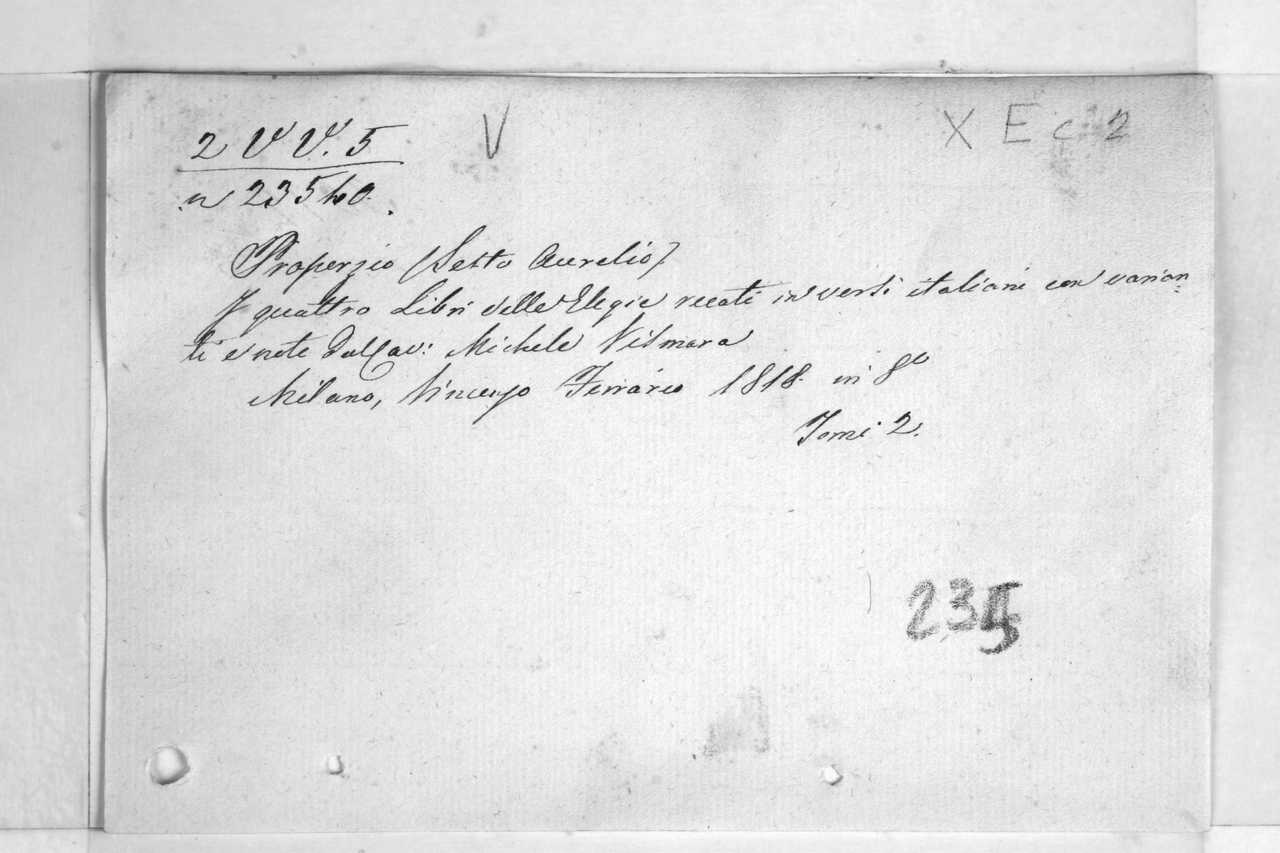 2 V V. 5
V
X E c 2
n 23540.
Properzio (Sesto Aurelio)
I quattro Libri delle Elegie recati in versi italiani con varian
ti e note dal Cav: Michele Vismara
Milano, Vincenzo Ferrario 1818. in 8º
Tomi 2.
235